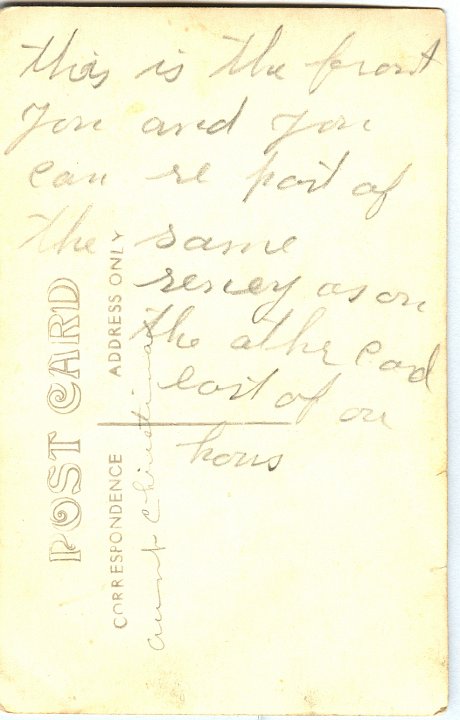 this is the front
you and you
can se part of
the same
seney as on
the othe cad
east of ou
hous
POST CARD
ADDRESS ONLY
CORRESPONDENCE
aunt Christina